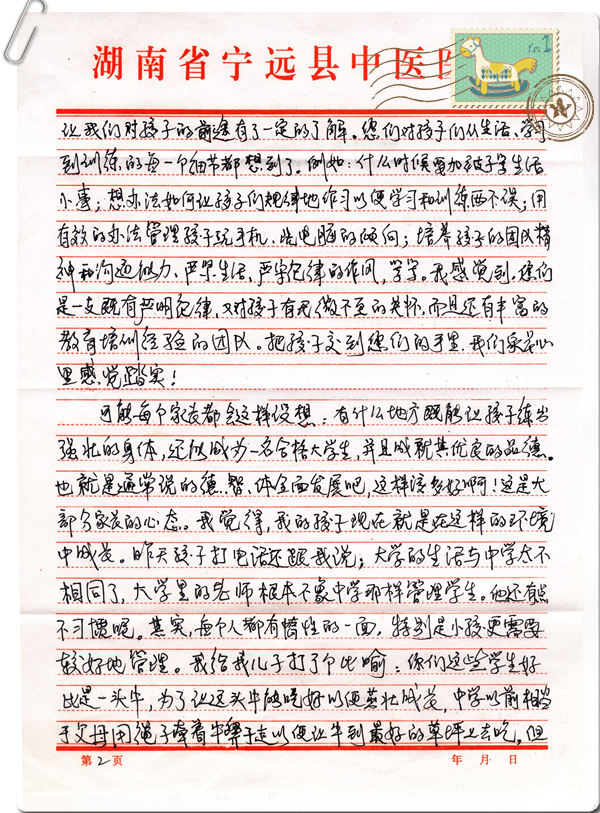 湖南省宁远县中医
让我们对孩子的前途有了一定的了解。您们对孩子们从生活、学习
到训练的每一个细节都想到了。例如:什么时候要加被子等生活
小事;想办法如何让孩子们规律地作习以便学习和训练两不误;用
有效的办法管理孩子玩手机、玩电脑的倾向;培养孩子的团队精
神和沟通能力、严肃生活、严守纪律的作风,等等。我感觉到,您们
是一支既有严明纪律,又对孩子有无微不至的关怀,而且还有丰富的
教育培训经验的团队。把孩子交到您们的手里,我们家长心
里感觉踏实!
可能每个家长都会这样设想:有什么地方既能让孩子练出
强壮的身体,还能成为一名合格大学生,并且成就其优良的品德。
也就是通常说的德、智、体全面发展吧,这样该多好啊!这是大
部分家长的心态。我觉得,我的孩子现在就是在这样的环境
中成长。昨天孩子打电话还跟我说;大学的生活与中学太不
相同了,大学里的老师根本不象中学那样管理学生。他还有点
不习惯呢。其实,每个人都有惰性的一面,特别是小孩更需要
较好地管理。我给我儿子打了个比喻:你们这些学生好
比是一头牛,为了让这头牛能吃好以便茁壮成长,中学以前相当
于父母用绳子牵着牛鼻子走以便让牛到最好的草坪上去吃,但
第2页
年 月 日
1